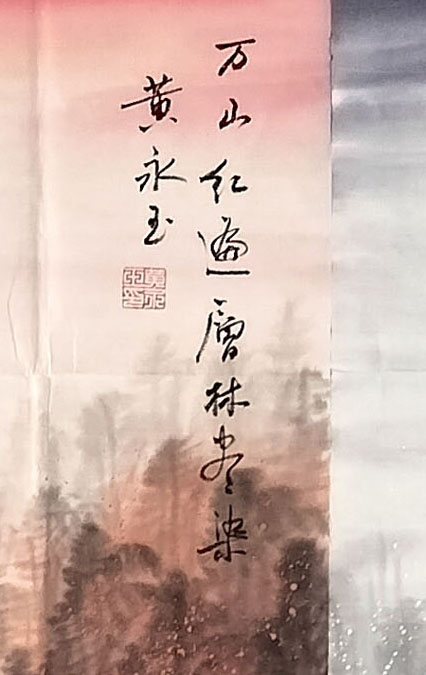 万山红遍層林尽染
黄永玉